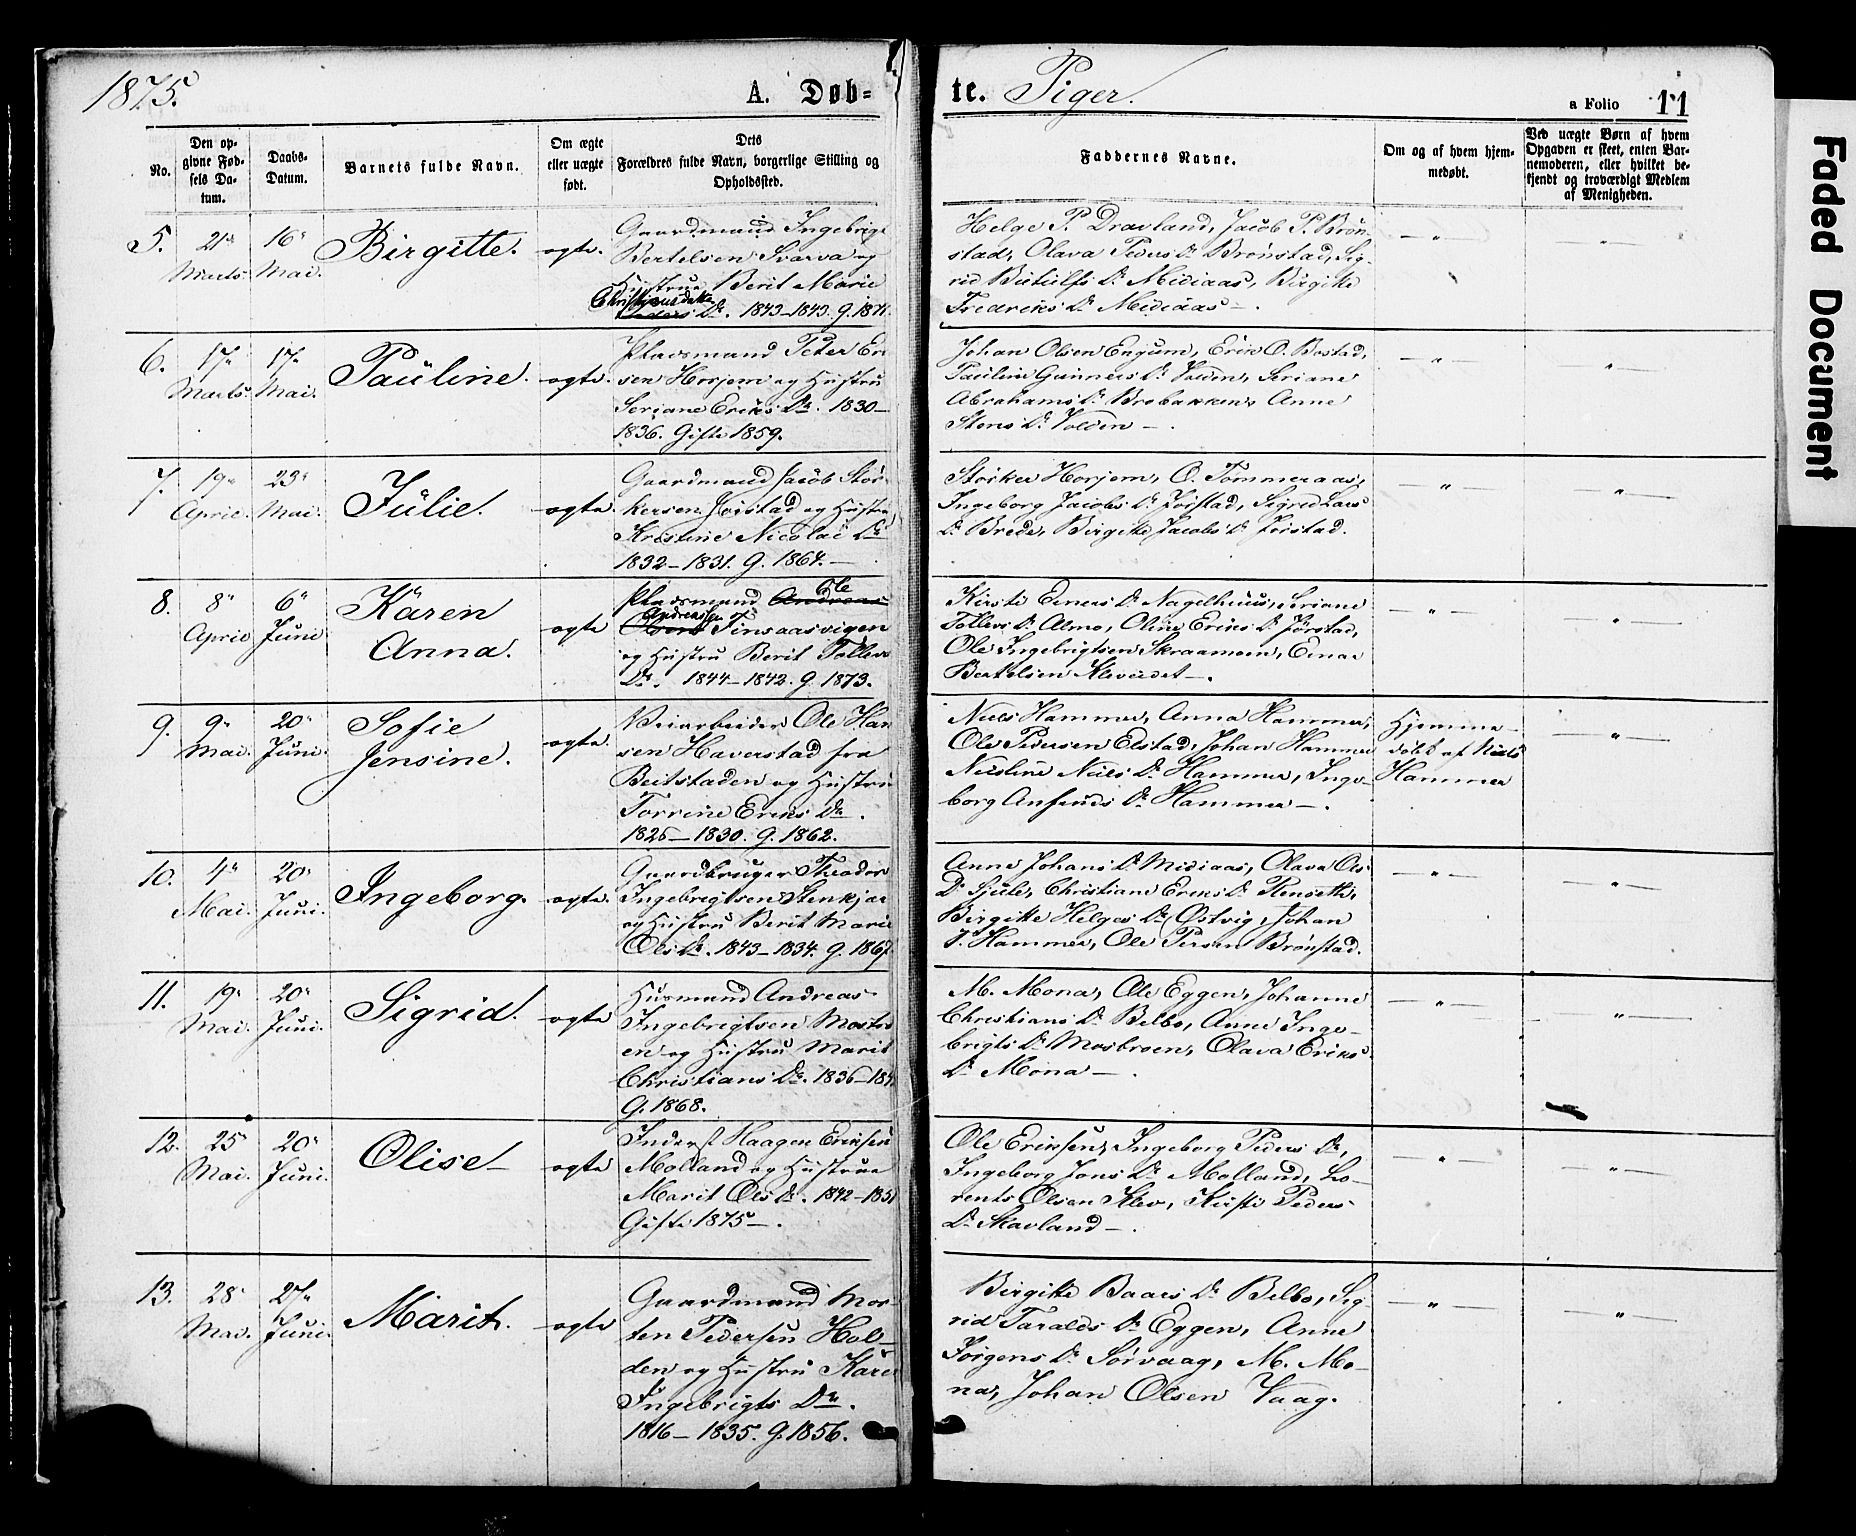 1875.
A. Døb=
te. Piger.
a Folio 11
No.
Den op-
givne Fød-
sels Da-
tum.
Daabs-
Datum.
Barnets fulde Navn.
Om ægte
eller uægte
født.
Dets
Forældres fulde Navn, borgerlige Stilling og
Opholdssted.
Faddernes Navne.
Om og af hvem hjem-
medøbt.
Ved uægte Børn af hvem
Opgaven er skeet, enten Bar-
nemoderen, eller hvilket be-
kjendt og troværdigt Medlem
af Menigheden.
5.
21
Marts
16
Mai.
Birgitte.
ægte.
Gaardmand Ingebrigt
Bertelsen Svarva og
Hustrue Berit Marie
Dr. 1843-1843. G. 187
Helge P. Dravland, Jacob P. Brøn-
stad, Olava Peders Dr Brønstad, Sig-
rid Dr Midiaas, Birgitte
Fredriks Dr Midiaas -.
6.
17
Marts.
17
Mai.
Pauline.
ægte.
Pladsmand Peter Erik
sen Horjem og Hustru
Seriane Eriks Dr. 1830-
1836. Gifte 1859.
Johan Olsen Engum, Erik O. Bostad,
Pauline Gunners Dr Volden, Seriane
Abrahams Dr Brobakken, Anne
Stens Dr Volden -.
7.
19
April.
23
Mai.
Julie.
ægte.
Gaardmand Jacob Stør-
kersen Jørstad og Hustru
Kristine Nicolai Dr
1832-1831. G. 1864. -
Størker Horjem, O. Tømmeraas,
Ingeborg Jacobs Dr Jørstad, Sigrid Lars
Dr Brede, Birgitte Jacobs Dr Jørstad.
8.
8
April
6
Juni
Karen
Anna.
ægte
Pladsmand Andreas Ole
Olsen Andreassen Finsaasvigen
og Hustru Berit Tollevs
Dr. 1844-1842. G. 1873.
Kirsti Einers Dr Nagelhuus, Seriane
Tollevs Dr Almo, Oline Eriks Dr Jørstad,
Ole Ingebrigtsen Skraamoen, Einar
Bertelsen -.
9.
9
Mai.
20
Juni.
Sofie
Jensine.
ægte.
Veiarbeider Ole Han
sen Haverstad fra
Beitstaden og Hustru
Torrine Eriks Dr.
1826-1830. G. 1862.
Niels Hammer, Anna Hammer,
Ole Pedersen Elstad, Johan Hammer
Nicoline Niels Dr Hammer, Inge-
borg Dr Hammer -.
Hjemme-
døbt af Niels
Hammer
10.
4
Mai.
20
Juni.
Ingeborg.
ægte.
Gaardbruger Theodor
Ingebrigtsen Stenkjær
og Hustru Berit Marie
Ols Dr. 1843-1834. G. 1867
Anne Johans Dr Midiaas, Olava Ols
Dr Sjule, Christiane Eriks Dr Kenseth,
Birgitte Helges Dr Østvig, Johan
J. Hammer, Ole Persen Brønstad.
11.
19
Mai.
20
Juni.
Sigrid.
ægte
Husmand Andreas
Ingebrigtsen Mosbro
en og Hustru Marit
Christians Dr. 1836-184
G. 1868.
M. Mona, Ole Eggen, Johanne
Christians Dr Belbo, Anne Inge-
brigts Dr Mosbroen, Olava Eriks
Dr Mona -.
12.
25
Mai.
20
Juni.
Olise
ægte
Inderst Haagen Eriksen
Molland og Hustrue
Marit Ols Dr. 1842-1851
Gifte 1875 -.
Ole Eriksen, Ingeborg Peders Dr,
Ingeborg Jons Dr Molland, Lo-
rents Olsen Klev, Kirsti Peders
Dr Skavland -
13.
28
Mai.
27
Juni.
Marit.
ægte
Gaardmand Mor-
ten Pedersen Hol-
den og Hustru Karen
Ingebrigts Dr.
1816-1835. G. 1856.
Birgitte Baars Dr Belbo, Sig-
rid Taralds Dr Eggen, Anne
Jørgens Dr Sørvaag, M. Mo-
na, Johan Olsen Vaag.
Faded Document